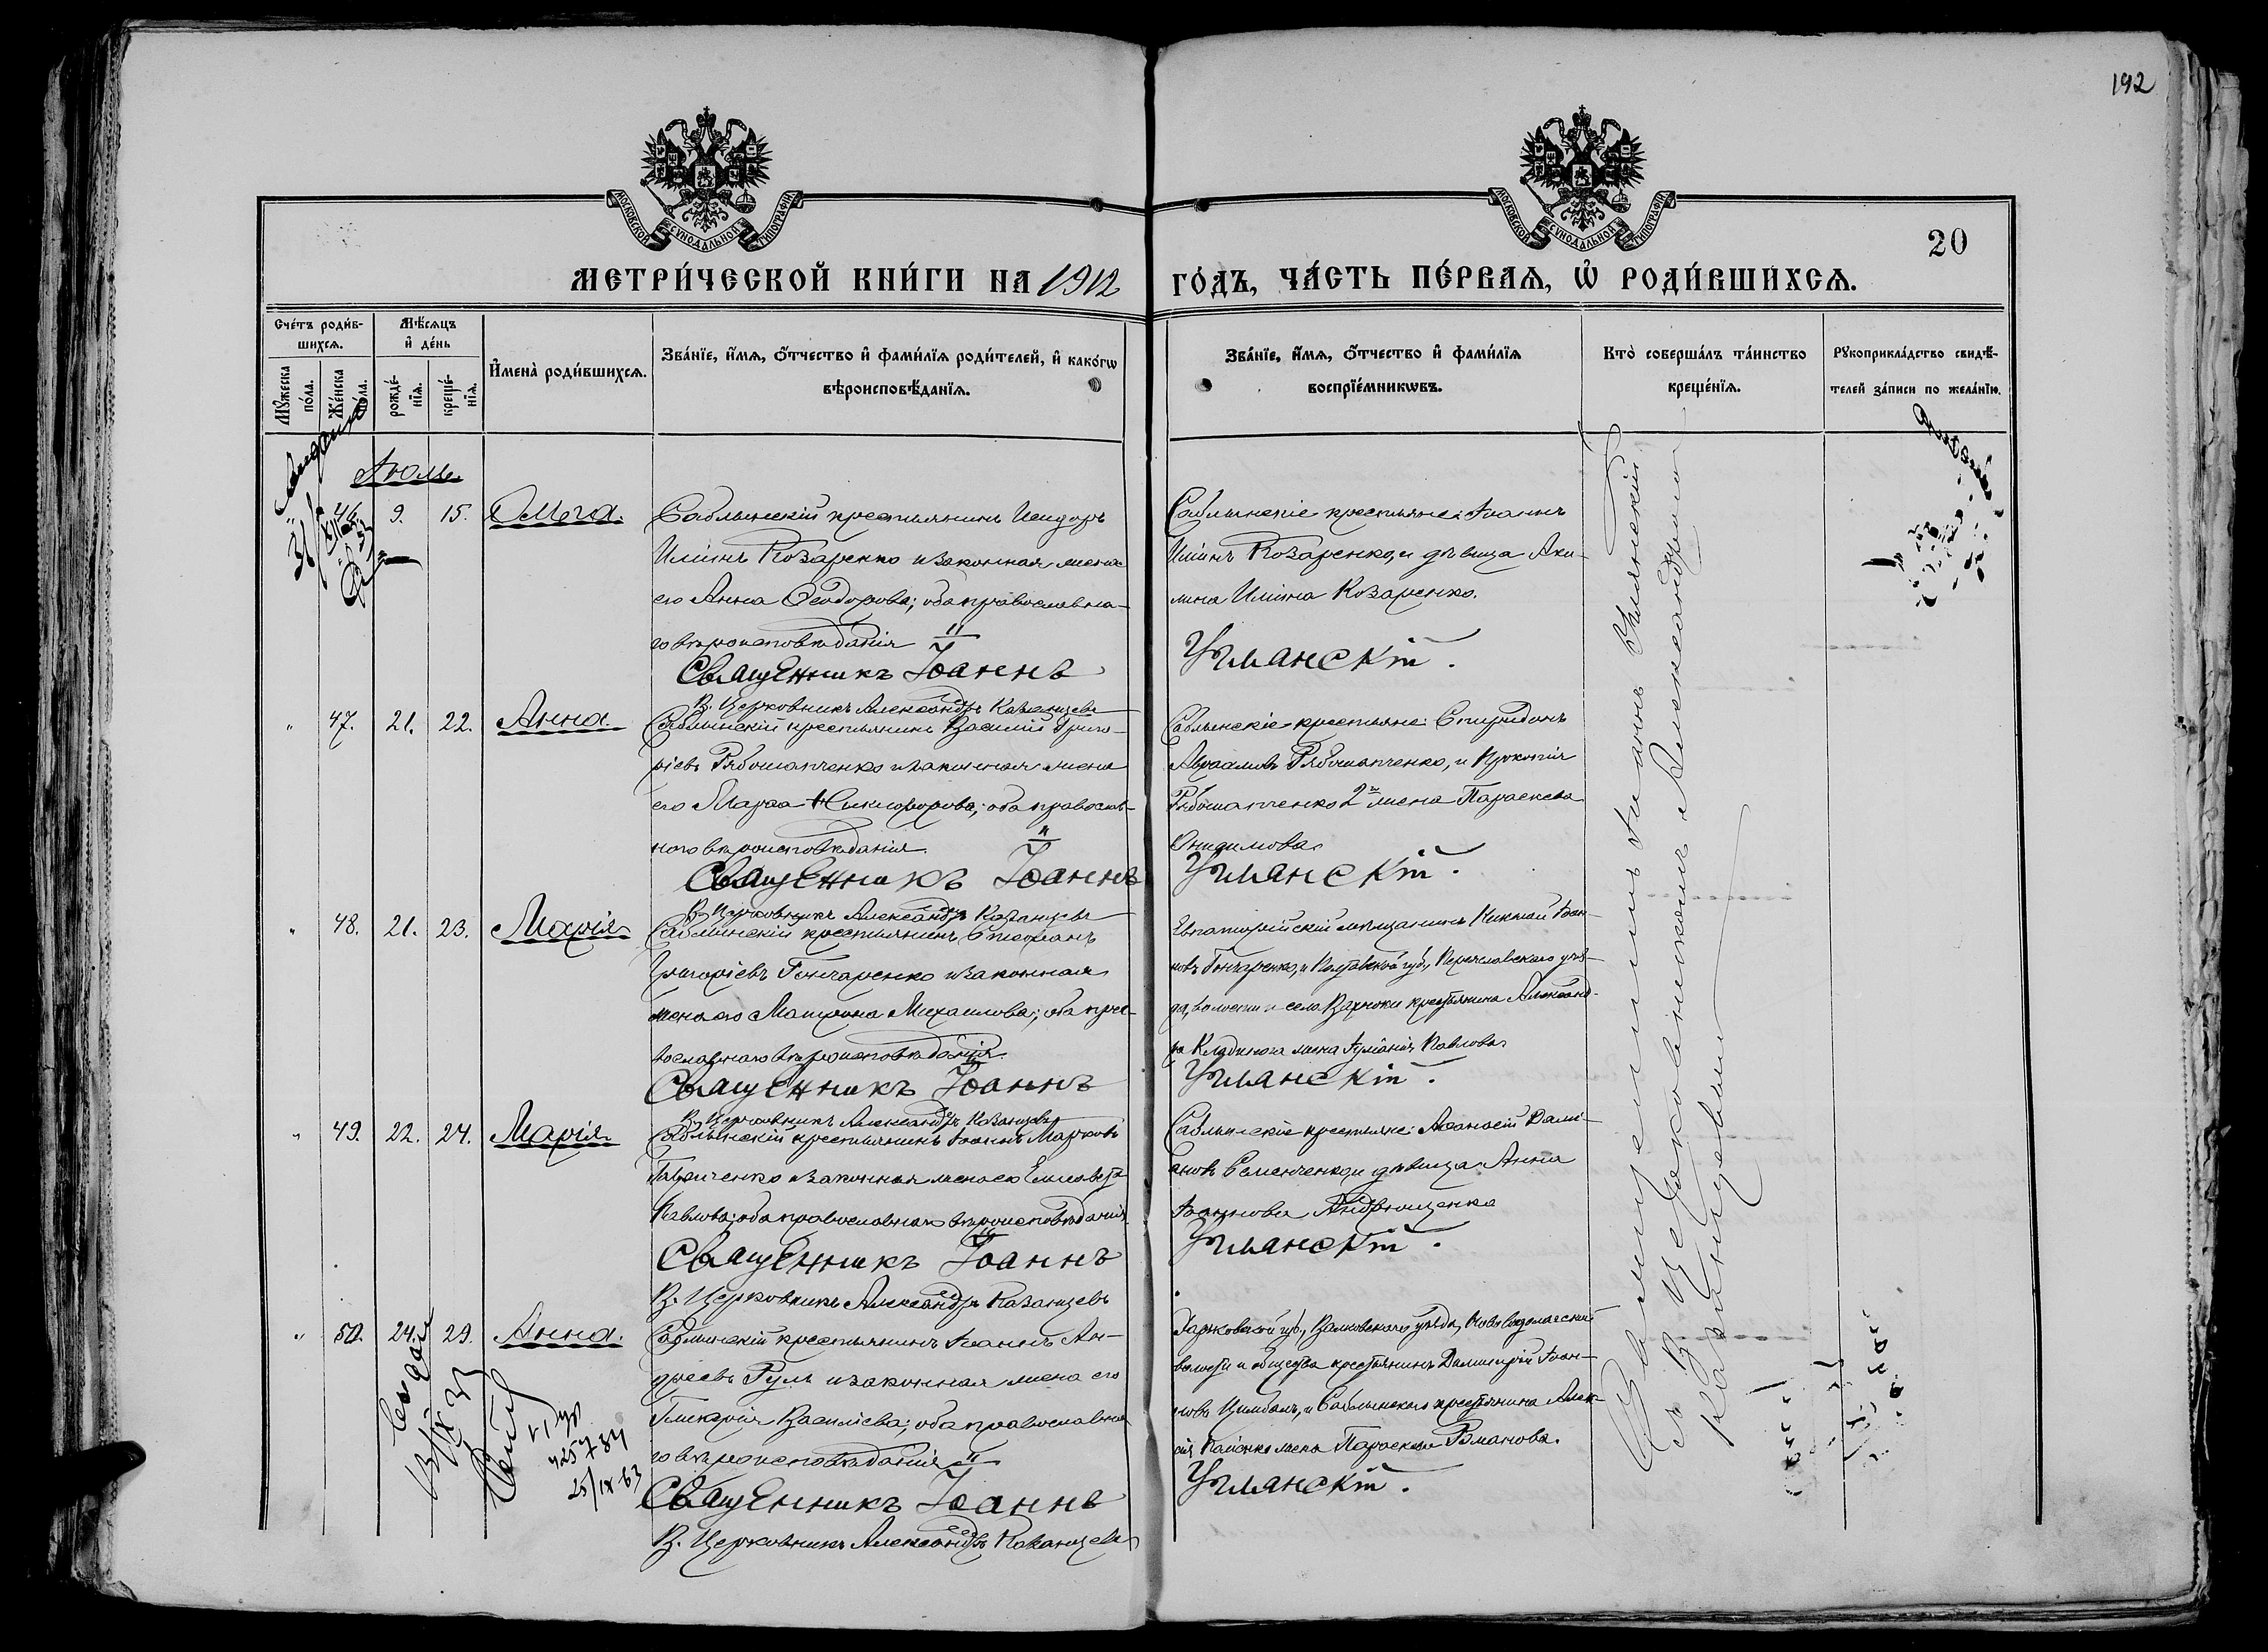 192
МОСКОВСКОЙ СѴНОДАЛЬНОЙ ТИПОГРАФІИ
МОСКОВСКОЙ СѴНОДАЛЬНОЙ ТИПОГРАФІИ
20
МЕТРИ́ЧЕСКОЙ КНИ́ГИ НА 1912 ГО́ДЪ, ЧА́СТЬ ПЕ́РВАѦ, Ѡ҆ РОДИ́ВШИХСѦ.
Сче́тъ роди́в-
шихсѧ.
Мꙋ́жеска
по́ла.
Же́нска
по́ла.
Мѣ́сѧцъ
и҆ де́нь
рожде́-
нїѧ.
креще́-
нїѧ.
И҆мена̀ роди́вшихсѧ.
Зва́нїе, и҆́мѧ, ѻ҆́тчество и҆ фами́лїѧ роди́телей, и҆ како́гѡ
вѣроисповѣ́данїѧ.
Зва́нїе, и҆́мѧ, ѻ҆́тчество и҆ фами́лїѧ
воспрїе́мникѡвъ.
Кто̀ соверша́лъ та́инство
креще́нїѧ.
Рꙋкоприкла́дство свидѣ́-
телей за́писи по жела́нїю.
Іюль.
" 46. 9. 15. Ольга.
Саблынскій крестьянинъ Исидоръ
Иліинъ Козаренко и законная жена
его Анна Ѳеодорова; оба православна-
го вѣроисповѣданія
Священникъ Іоаннъ
В. Церковникъ Александръ Казанцевъ
Саблынскіе крестьяне: Іоаннъ
Иліинъ Козаренко, и дѣвица Аки-
лина Иліина Козаренко.
Уманскій.
" 47. 21. 22. Анна.
Саблынскій крестьянинъ Василій Григо-
ріевъ Рябошапченко и законная жена
его Марѳа Никифорова; оба православ-
наго вѣроисповѣданія.
Священникъ Іоаннъ
В. Церковникъ Александръ Казанцевъ
Саблынскіе крестьяне: Спиридонъ
Авраамовъ Рябошапченко, и Прокопія
Рябошапченко 2я жена Параскева
Онисимова
Уманскій.
" 48. 21. 23. Марія
Саблынскій крестьянинъ Стефанъ
Григоріевъ Гончаренко и законная
жена его Матрона Михаилова; оба пра-
вославнаго вѣроисповѣданія.
Священникъ Іоаннъ
В. Церковникъ Александръ Казанцевъ
Евпаторійскій мѣщанинъ Николай Іоан-
новъ Гончаренко, и Полтавской губ., Переяславского уѣз-
да, волости и села крестьянина Александ-
ра жена Іуліанія Павлова
Уманскій.
" 49. 22. 24. Марія
Саблынскій крестьянинъ Іоаннъ Марковъ
и законная жена его Елисавета
Павлова; оба православнаго вѣроисповѣданія.
Священникъ Іоаннъ
В. Церковникъ Александръ Казанцевъ
Саблынскіе крестьяне: Аѳанасій Дамі-
ановъ Семенченко, и дѣвица Анна
Іоаннова Андрющенко
Уманскій.
" 50. 24. 29. Анна.
Саблынскій крестьянинъ Іоаннъ Ан-
дреевъ Гуль и законная жена его
Гликерія Василіева; оба православна-
го вѣроисповѣданія
Священникъ Іоаннъ
В. Церковникъ Александръ Казанцевъ
Харьковской губ., Валковского уѣзда, Ново Водолажской
волости и общества крестьянинъ Димитрій Іоан-
новъ Цимбалъ, и Саблынскаго крестьянина Алек-
сія жена Параскева Романова.
Уманскій.
Священникъ Іоаннъ Уманскій
съ В. Церковникомъ Александромъ
Казанцевымъ
425734
25/IX-63